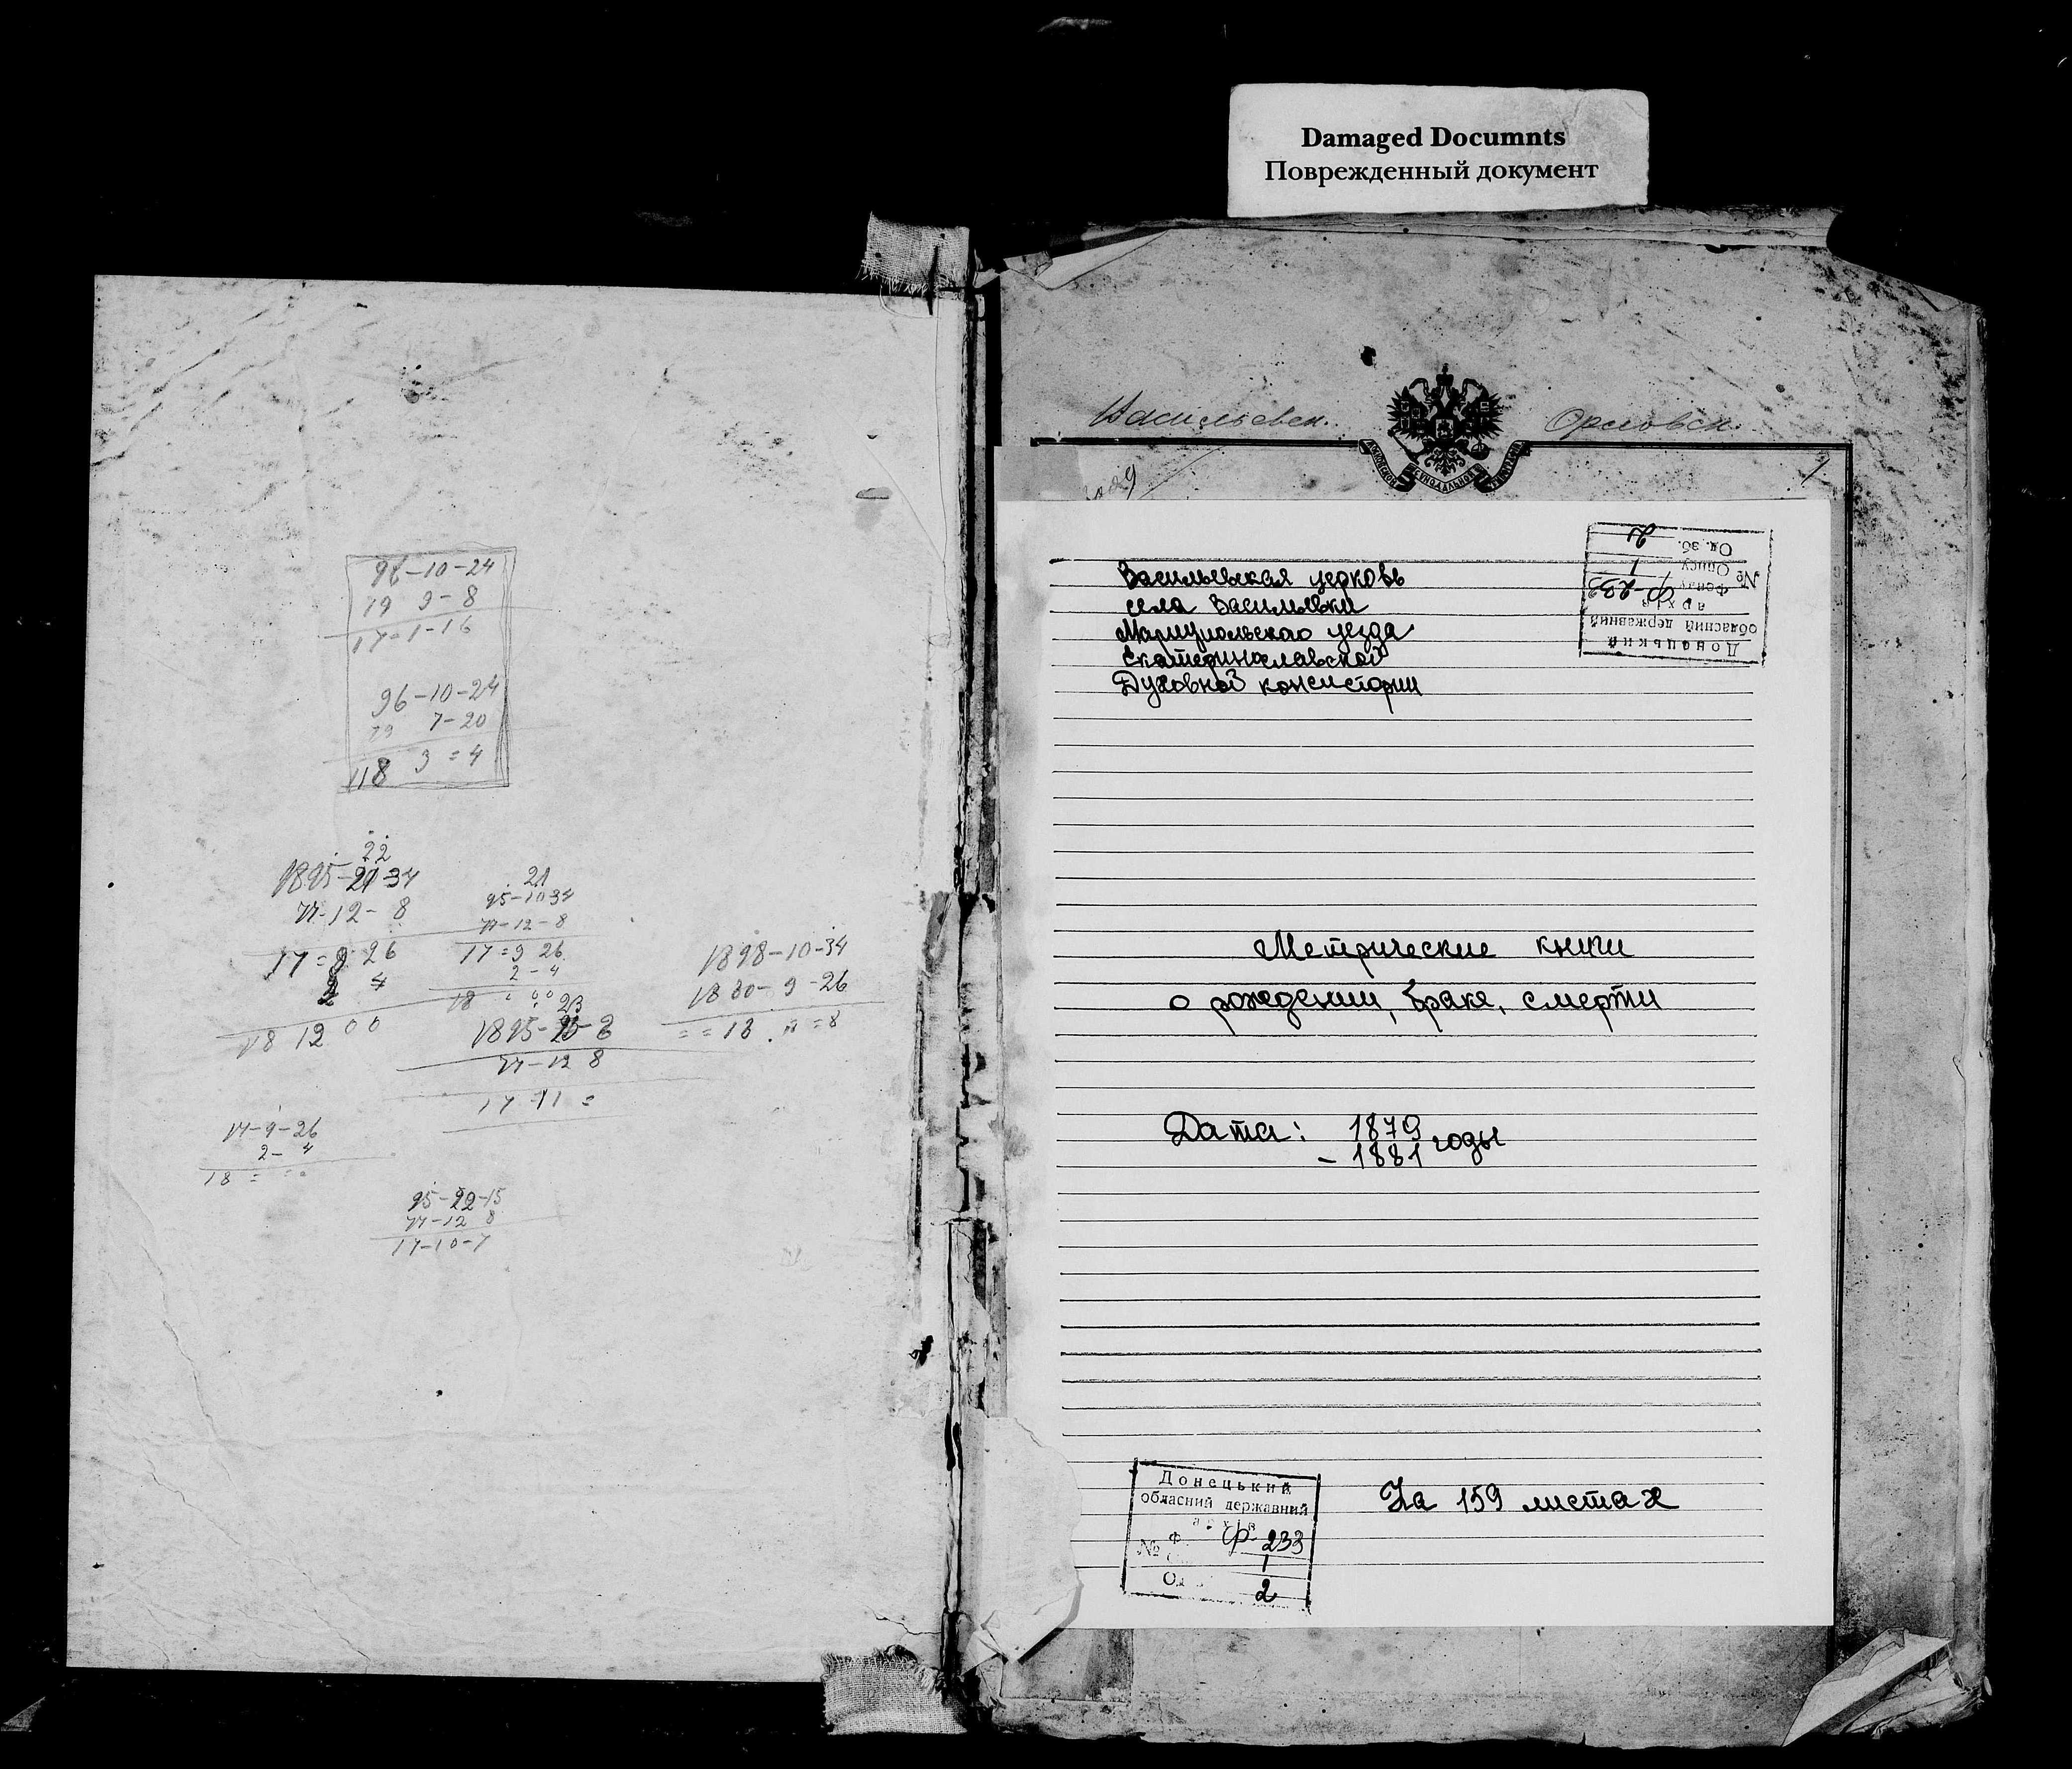 Damaged Documnts
Поврежденный документ
96-10-24
19 9-8
17=1-16
96-10-24
79 7-20
118 3=4
22
1895-21-34
77-12-8
17=9 26
2 4
18 12 00
21
95-10 34
77-12-8
17=9 26
2-4
18
23
1895-8
77-12 8
17 11 =
1898-10-34
1880-9-26
==18 . " =8
77-9-26
2-4
18 =
95-22-15
77-12 8
17-10-7
Васильевск. Орловск.
1
МОСКОВСКОЙ СИНОДАЛЬНОЙ ТИПОГРАФІИ
Донецький
обласний державний
архів
№ Фонду Ф-233
Опису 1
Од. зб. 2
Васильевская церковь
села Васильевки
Мариупольского уезда
Екатеринославской
Духовной консистории
Метрические книги
о рождении, браке, смерти
Дата: 1879
- 1881 годы
На 159 листах
Донецький
обласний державний
архів
№ Ф. Ф. 233
1
Од. 2